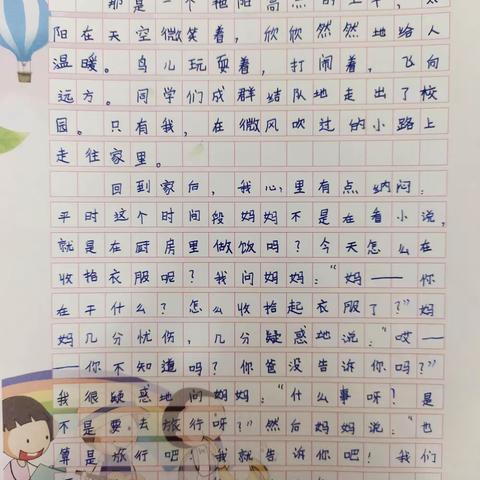 那是一个艳阳高照的上午，太
阳在天空微笑着，欣欣然然地给人
温暖。鸟儿玩耍着，打闹着，飞向
远方。同学们成群结队地走出了校
园。只有我，在微风吹过的小路上
走往家里。
回到家后，我心里有点纳闷：
平时这个时间段妈妈不是在看小说，
就是在厨房里做饭吗？今天怎么在
收拾衣服呢？我问妈妈：“妈——你
在干什么？怎么收拾起衣服了？”妈
妈几分忧伤，几分疑惑地说：“哎—
—你不知道吗？你爸没告诉你吗？”
我很疑惑地问妈妈：“什么事呀？是
不是要去旅行呀？”然后妈妈说：“也
算是旅行吧！我就告诉你吧！我们